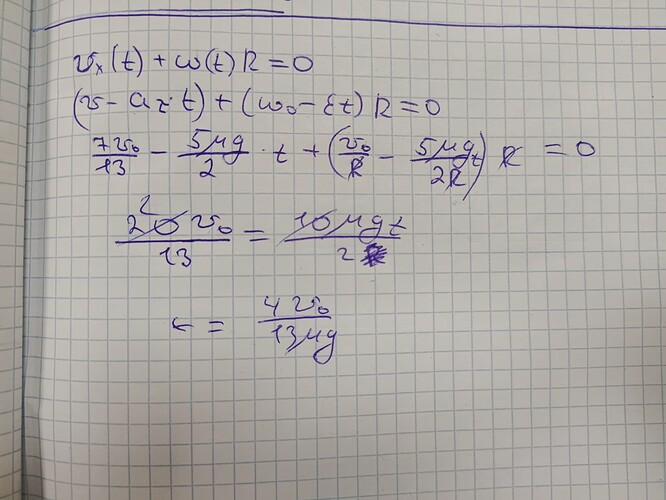 υₓ(t) + ω(t) R = 0
(υ - a_τ · t) + (ω₀ - εt) R = 0
7υ₀/13 - 5μg/2 · t + (υ₀/R - 5μgt/2R) R = 0
2 20υ₀/13 = 10μgt/2
t = 4υ₀/13μg